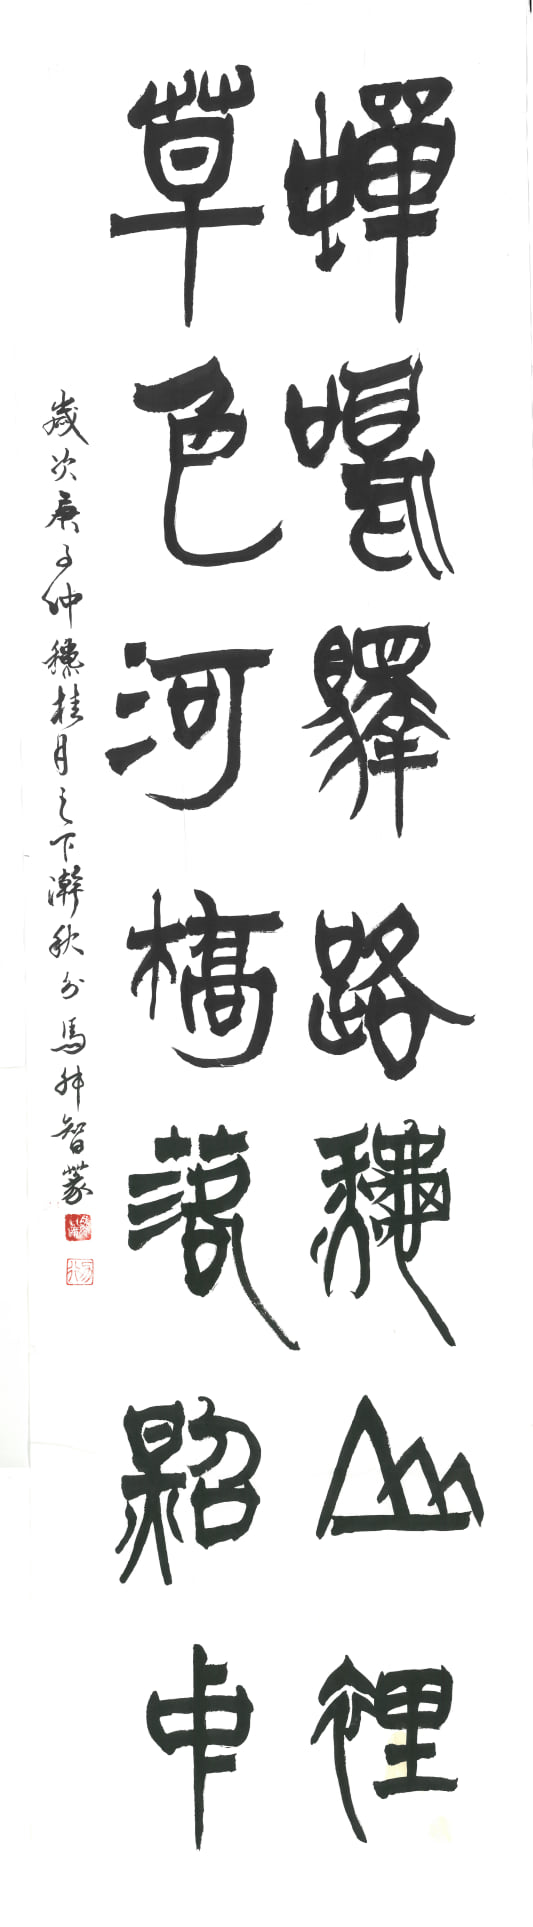 蟬唱驛路穐山裡
草色河橋落照中
歲次庚子仲穐桂月之下澣秋分馬帥智篆